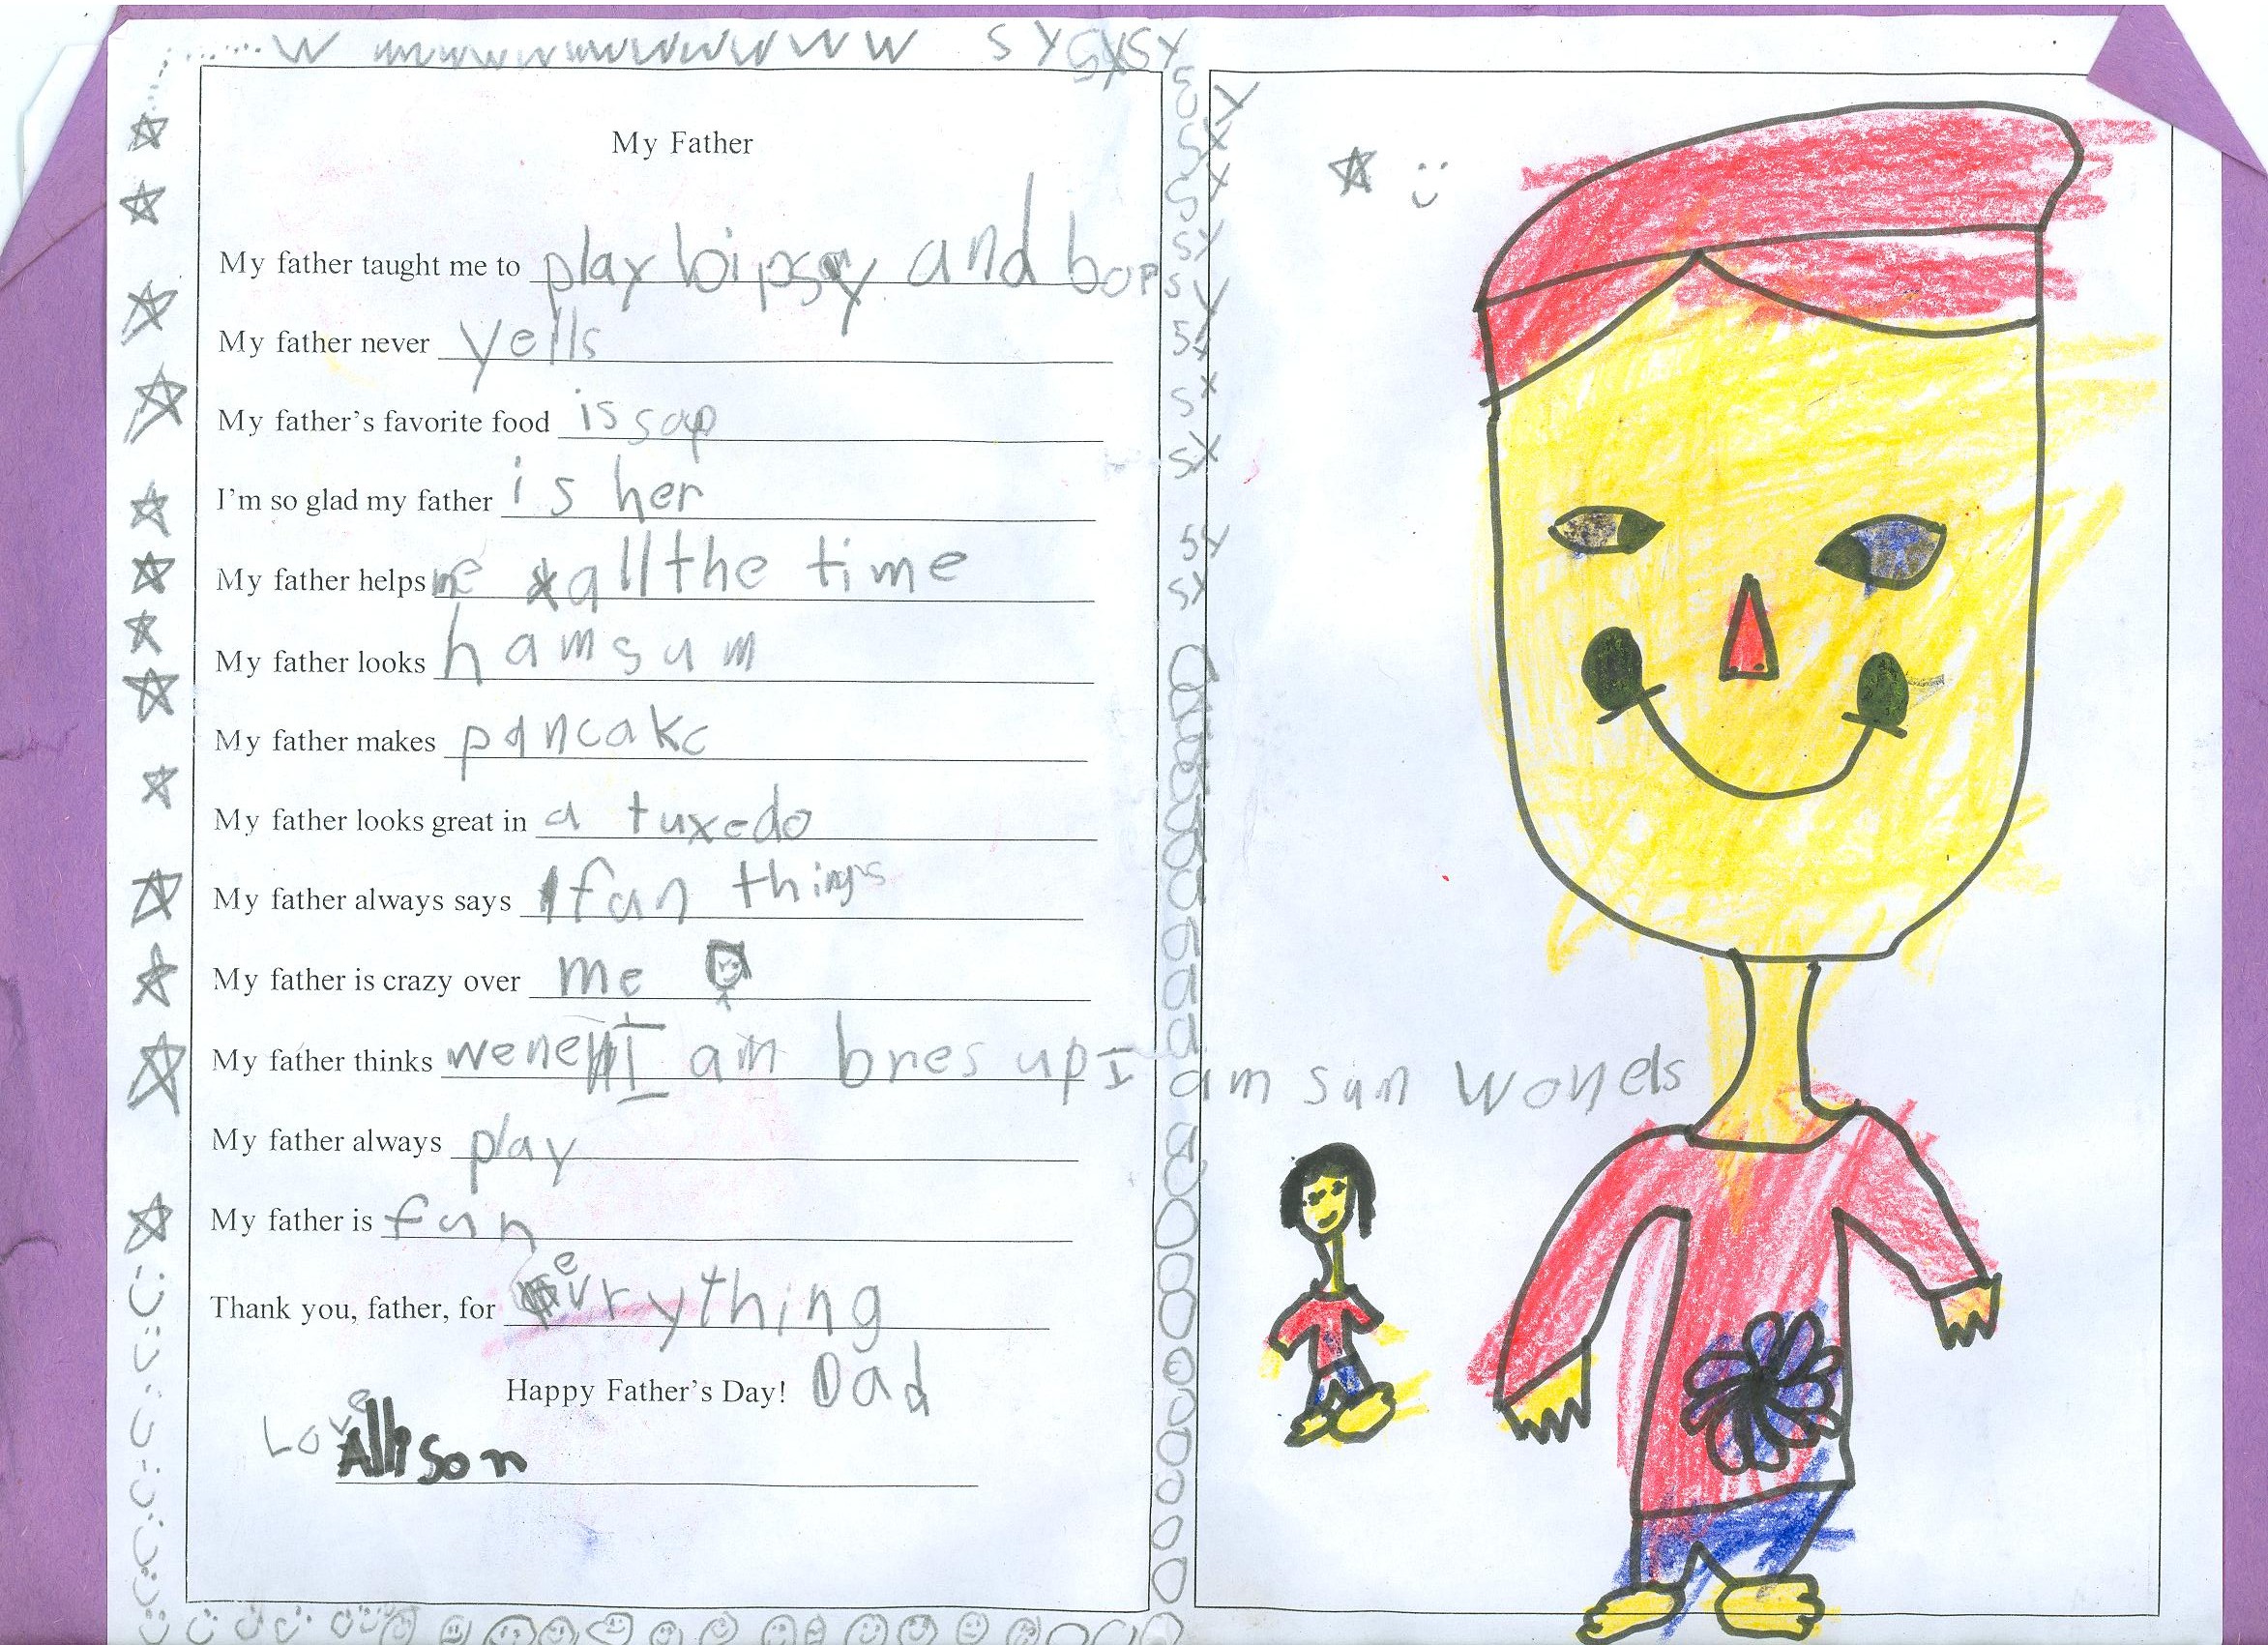 My Father
My father taught me to play bipsy and bopsy
My father never yells
My father's favorite food is sop
I'm so glad my father is her
My father helps me all the time
My father looks hamsum
My father makes pancake
My father looks great in a tuxedo
My father always says fun things
My father is crazy over me
My father thinks wene I am bres up I am sun wonels
My father always play
My father is fun
Thank you, father, for evrything
Happy Father's Day! Dad
Love
Allison